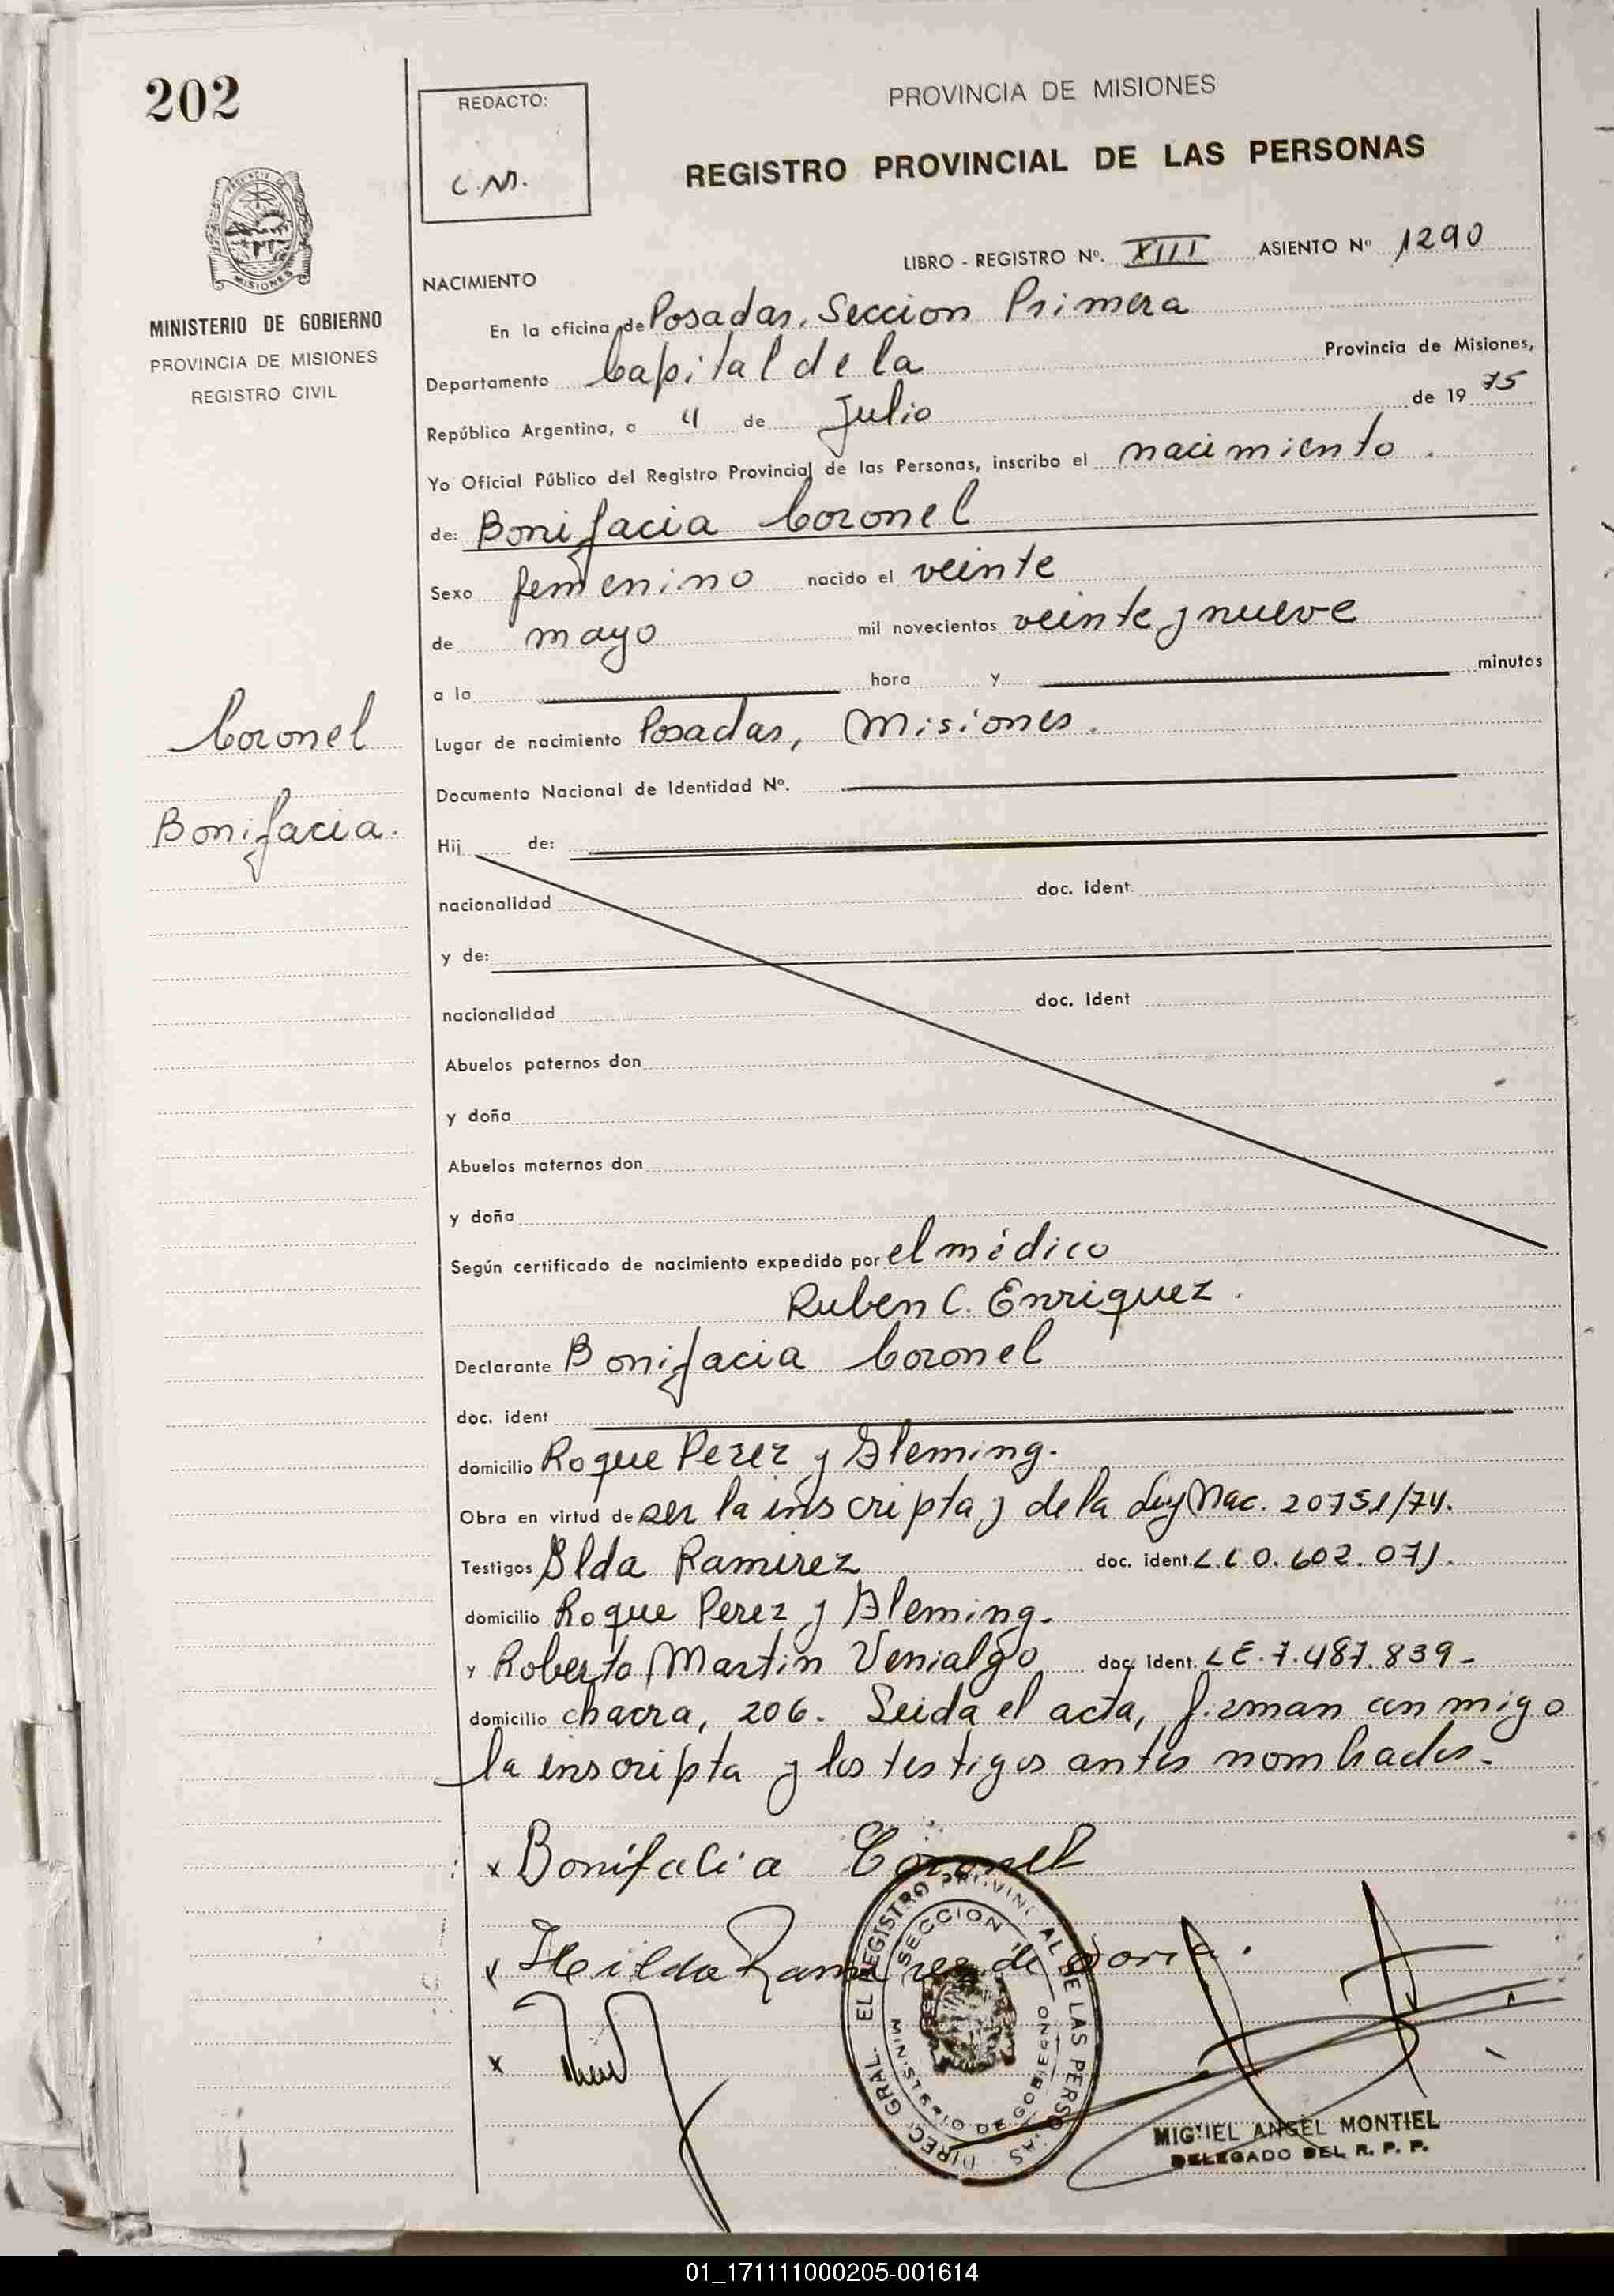 202
REDACTO:
C.M.
PROVINCIA DE MISIONES
REGISTRO PROVINCIAL DE LAS PERSONAS
PROVINCIA DE
MISIONES
MINISTERIO DE GOBIERNO
PROVINCIA DE MISIONES
REGISTRO CIVIL
LIBRO - REGISTRO Nº. XIII ASIENTO Nº 1290
NACIMIENTO
En la oficina de Posadas, Seccion Primera
Departamento Capital de la Provincia de Misiones,
República Argentina, a 4 de Julio de 1975
Yo Oficial Público del Registro Provincial de las Personas, inscribo el nacimiento.
de: Bonifacia Coronel
Sexo femenino nacido el veinte
de mayo mil novecientos veinte y nueve
a la hora y minutos
Coronel
Lugar de nacimiento Posadas, Misiones.
Documento Nacional de Identidad Nº.
Bonifacia.
Hij de:
nacionalidad doc. ident
y de:
nacionalidad doc. ident
Abuelos paternos don
y doña
Abuelos maternos don
y doña
Según certificado de nacimiento expedido por el médico
Ruben C. Enriquez.
Declarante Bonifacia Coronel
doc. ident
domicilio Roque Perez y Fleming.
Obra en virtud de ser la inscripta y de la Ley Nac. 20751/74.
Testigos Ilda Ramirez doc. ident. L.C 0.602.071.
domicilio Roque Perez y Fleming.
y Roberto Martin Venialgo doc. ident. LE. 7.487.839-
domicilio chacra, 206. Leida el acta, firman conmigo
la inscripta y los testigos antes nombrados.
x Bonifacia Coronel
x Hilda Ramirez de
x
DIREC. GRAL. EL REGISTRO PROVINCIAL DE LAS PERSONAS
SECCION 1
MINISTERIO DE GOBIERNO
MIGUEL ANGEL MONTIEL
DELEGADO DEL R. P. P.
01_171111000205-001614